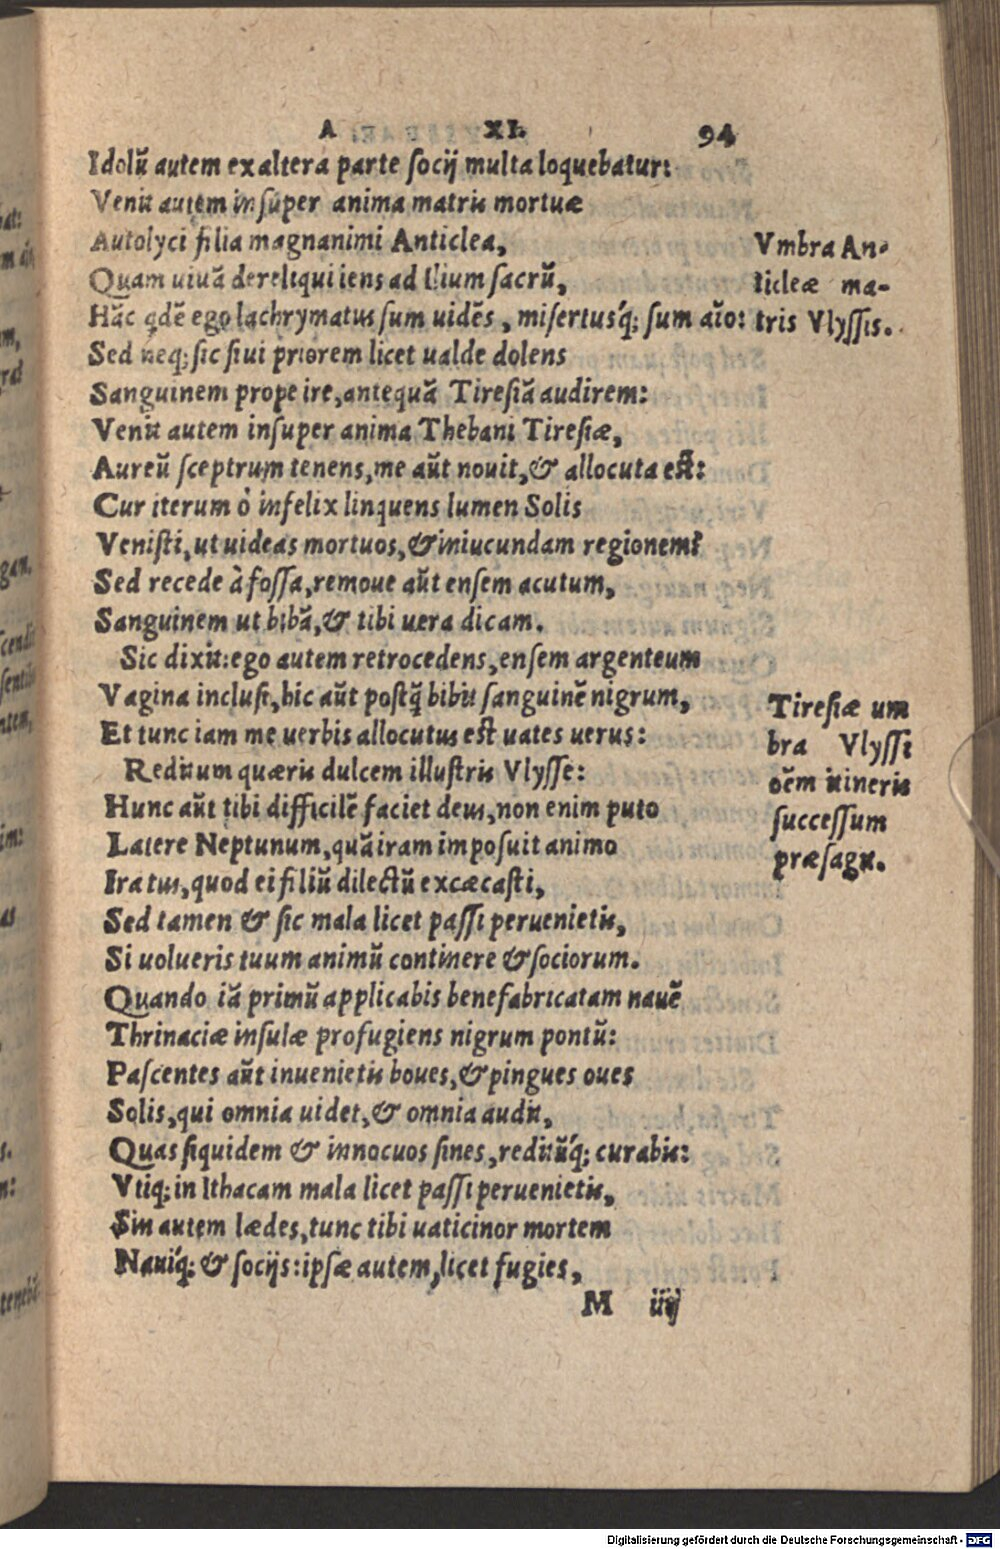 A XI. 94
Idolũ autem ex altera parte socij multa loquebatur:
Venit autem insuper anima matris mortuæ
Autolyci filia magnanimi Anticlea,
Quam uiuã dereliqui iens ad Ilium sacrũ,
Hãc qdẽ ego lachrymatus sum uidẽs, misertusq́; sum aĩo:
Sed neq; sic siui priorem licet ualde dolens
Sanguinem prope ire, antequã Tiresiã audirem:
Venit autem insuper anima Thebani Tiresiæ,
Aureũ sceptrum tenens, me aũt nouit, & allocuta est:
Cur iterum ò infelix linquens lumen Solis
Venisti, ut uideas mortuos, & iniucundam regionem?
Sed recede à fossa, remoue aũt ensem acutum,
Sanguinem ut bibã, & tibi uera dicam.
Sic dixit: ego autem retrocedens, ensem argenteum
Vagina inclusi, hic aũt postq̃ bibit sanguinẽ nigrum,
Et tunc iam me uerbis allocutus est uates uerus:
Reditum quæris dulcem illustris Vlysse:
Hunc aũt tibi difficilẽ faciet deus, non enim puto
Latere Neptunum, quã iram imposuit animo
Iratus, quod ei filiũ dilectũ excæcasti,
Sed tamen & sic mala licet passi peruenietis,
Si uolueris tuum animũ continere & sociorum.
Quando iã primũ applicabis benefabricatam nauẽ
Thrinaciæ insulæ profugiens nigrum pontũ:
Pascentes aũt inuenietis boues, & pingues oues
Solis, qui omnia uidet, & omnia audit,
Quas siquidem & innocuos sines, reditũq́; curabis:
Vtiq; in Ithacam mala licet passi peruenietis,
Sin autem lædes, tunc tibi uaticinor mortem
Nauiq́; & socijs: ipsæ autem, licet fugies,
M iiij
Vmbra An-
ticleæ ma-
tris Vlyssis.
Tiresiæ um
bra Vlyssi
oẽm itineris
successum
præsagit.
Digitalisierung gefördert durch die Deutsche Forschungsgemeinschaft - DFG